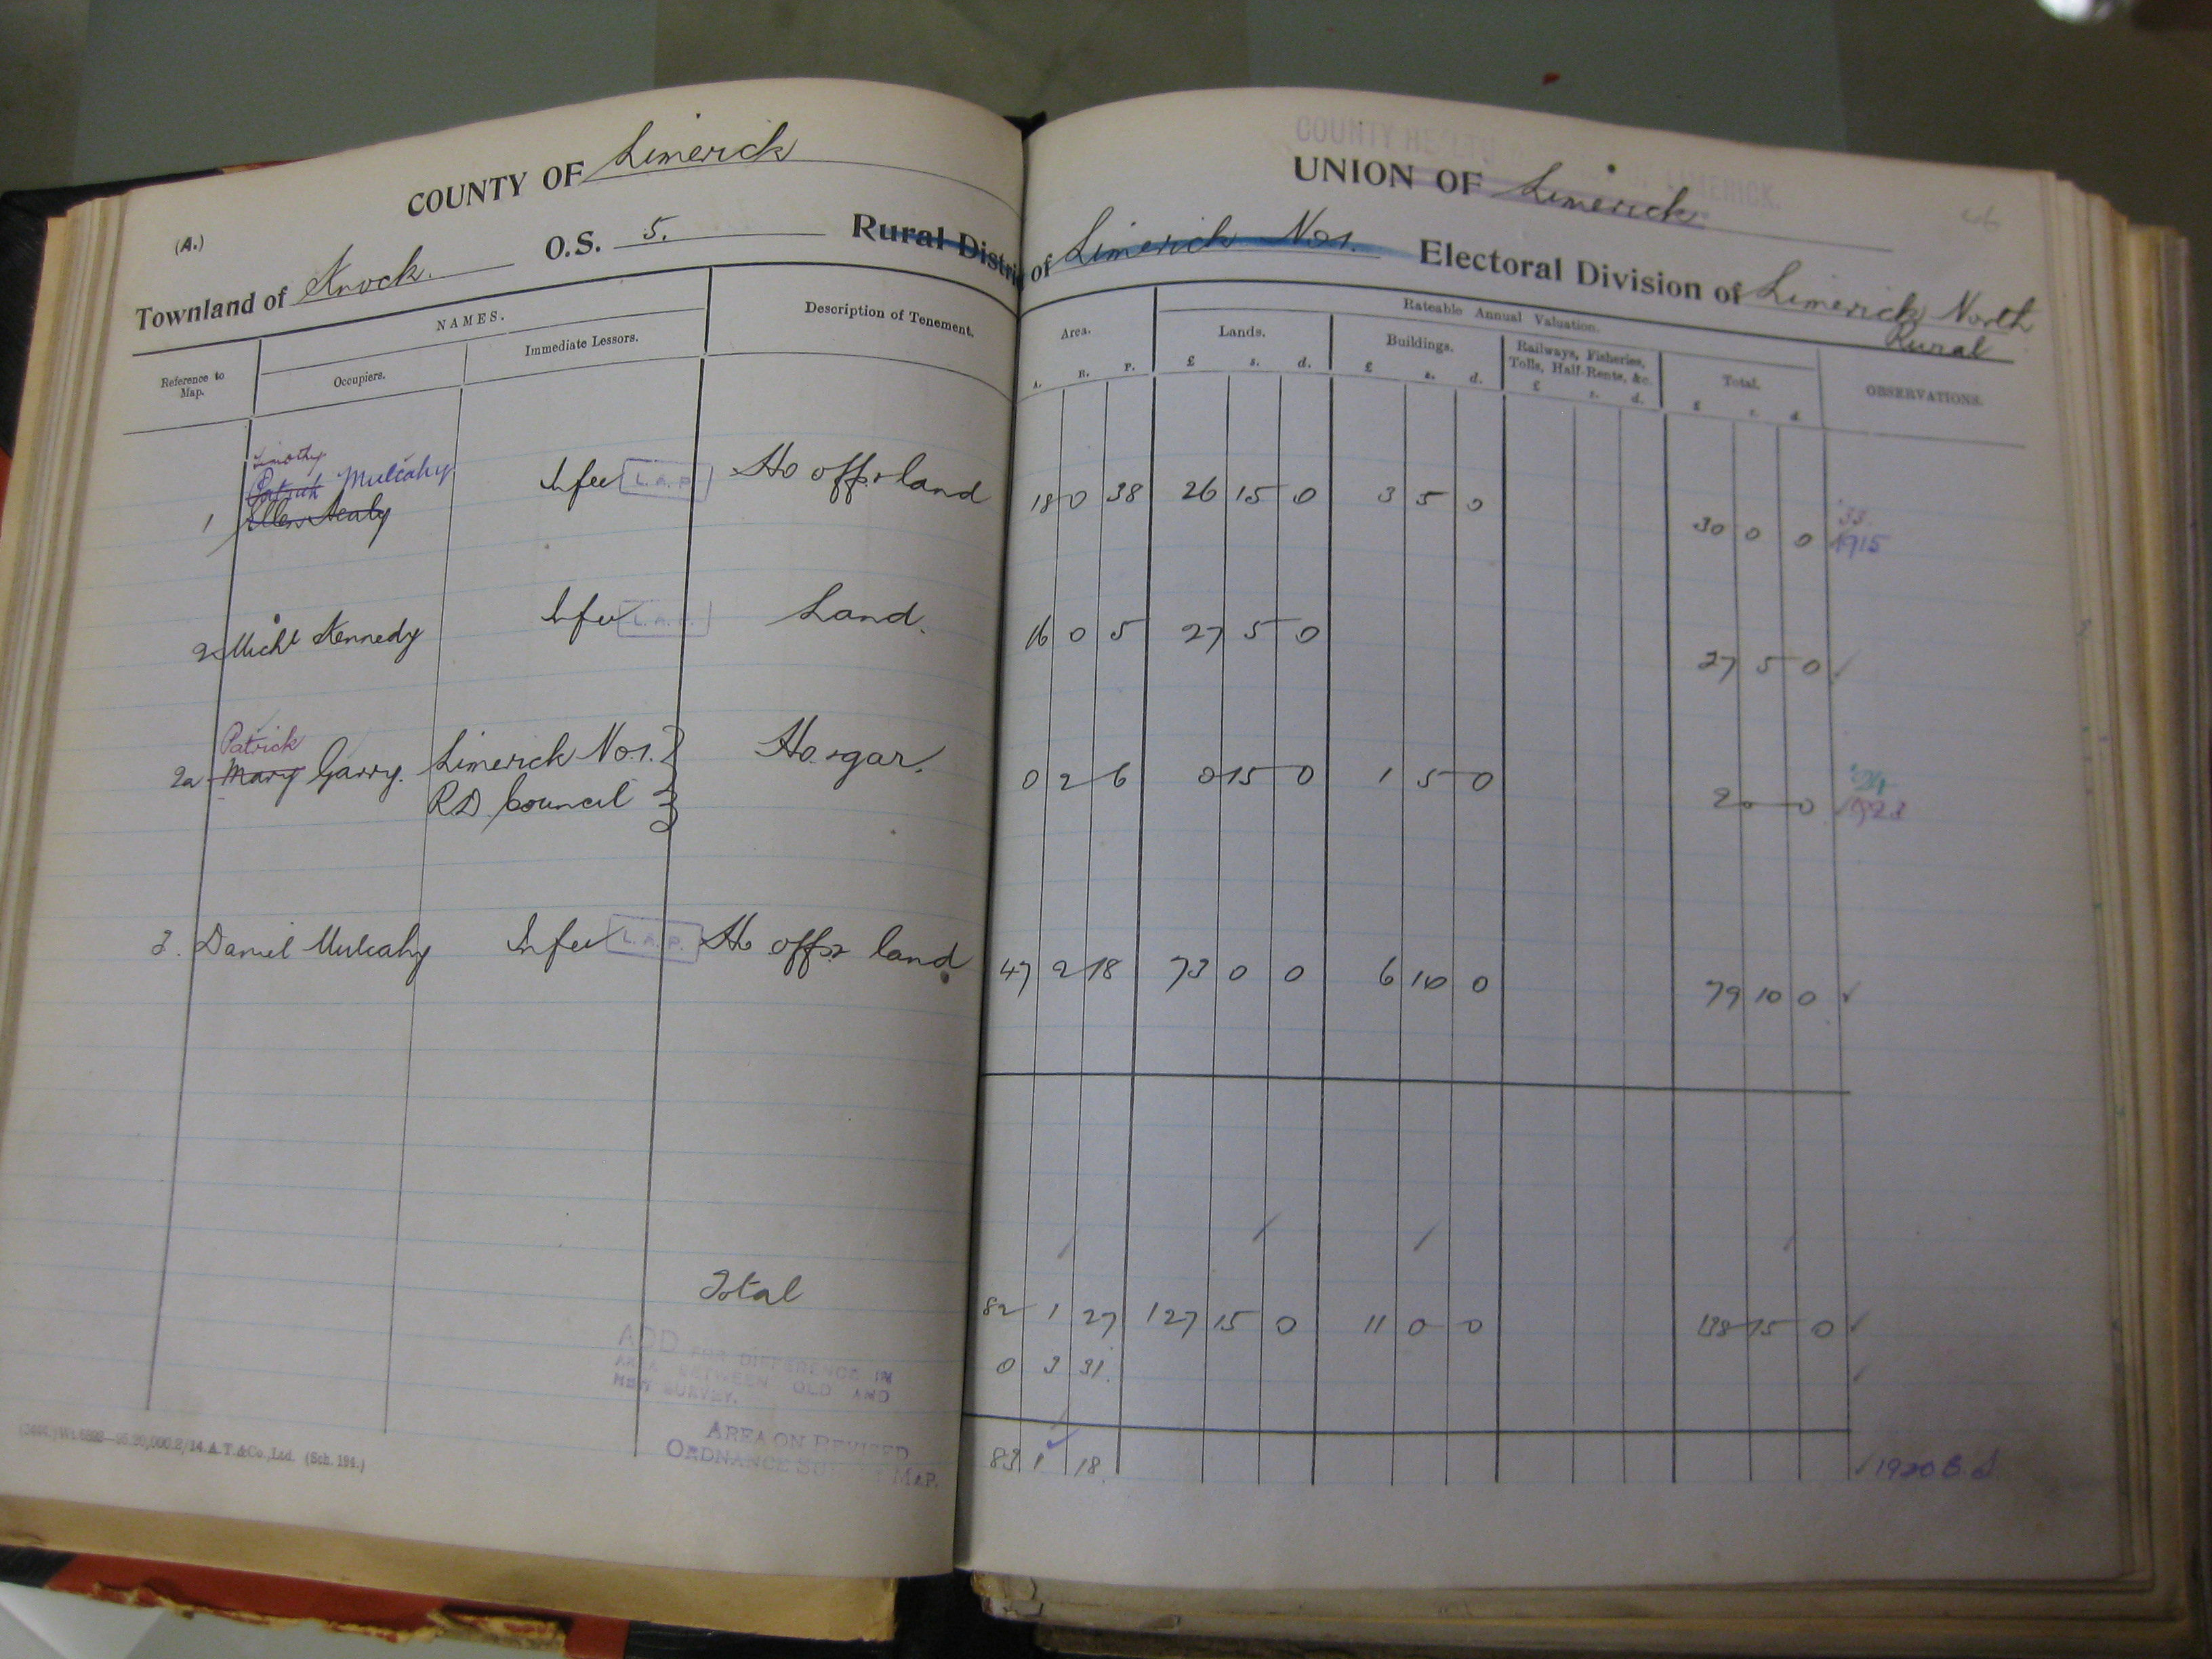 COUNTY OF Limerick
(A.)
Townland of Knock. O.S. 5. Rural Distri
Reference to Map.
NAMES.
Occupiers.
Immediate Lessors.
Description of Tenement.
Timothy
Patrick Mulcahy
1 Ellen Healy In fee L.A.P. Ho offs & land
2 Michl Kennedy In fee L.A.P. Land.
Patrick
2a Mary Garry. Limerick No 1. Ho & gar.
RD Council
3. Daniel Mulcahy In fee L.A.P. Ho offs & land
Total
ADD FOR DIFFERENCE IN
AREA BETWEEN OLD AND
NEW SURVEY.
AREA ON REVISED
ORDNANCE SURVEY MAP.
A.T.&Co., Ltd. (Sch. 194.)
COUNTY HEALTH
LIMERICK.
UNION OF Limerick
of Limerick No 1. Electoral Division of Limerick North
Rural
Area.
A. R. P.
Rateable Annual Valuation.
Lands.
£ s. d.
Buildings.
£ s. d.
Railways, Fisheries,
Tolls, Half-Rents, &c.
£ s. d.
Total.
£ s. d.
OBSERVATIONS.
18 0 38 26 15 0 3 5 0 30 0 0 33
1915
16 0 5 27 5 0 27 5 0
0 2 6 0 15 0 1 5 0 2 0 0 1923
47 2 18 73 0 0 6 10 0 79 10 0
82 1 27 127 15 0 11 0 0 138 15 0
0 3 31.
83 1 18. 1920